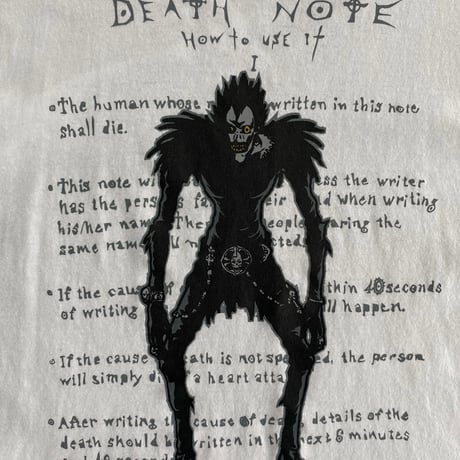 DEATH NOTE
How to USE It
I
The human whose written in this note
shall die.
This note wi ss the writer
has the pers fa eir d when writing
his/her name The eople aring the
same name n cted
If the caus f thin 40seconds
of writing ll happen.
If the cause eath is not spe ed, the person
will simply di a heart atta
After writing th cause of dea details of the
death should b written in th next 6 minutes